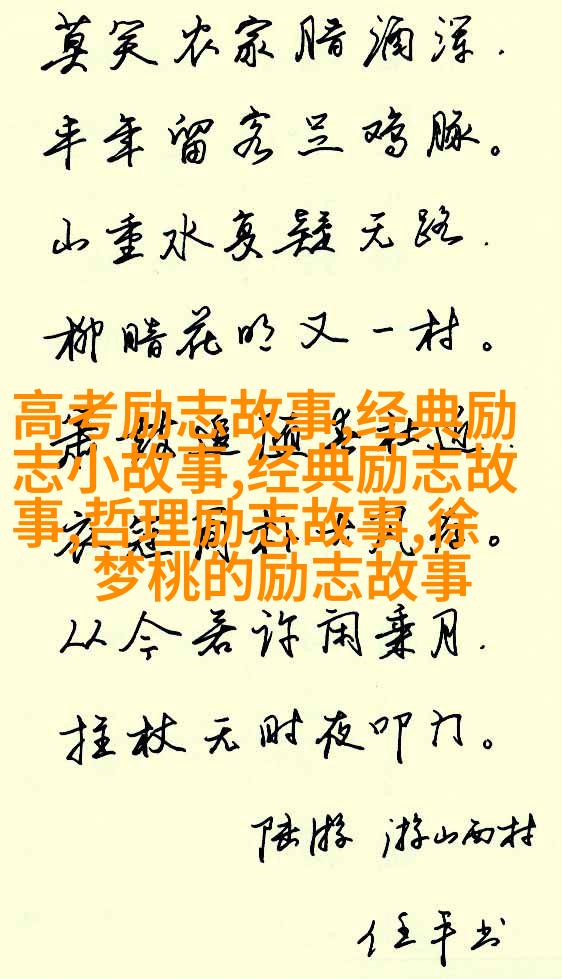 莫笑农家腊酒浑.
丰年留客足鸡豚。
山重水复疑无路.
柳暗花明又一村。
高考励志故事,经典励
志小故事,经典励志故
事,哲理励志故事,徐
梦桃的励志故事
从今若许闲乘月.
拄杖无时夜叩门。
陆游 游山西村
任平书